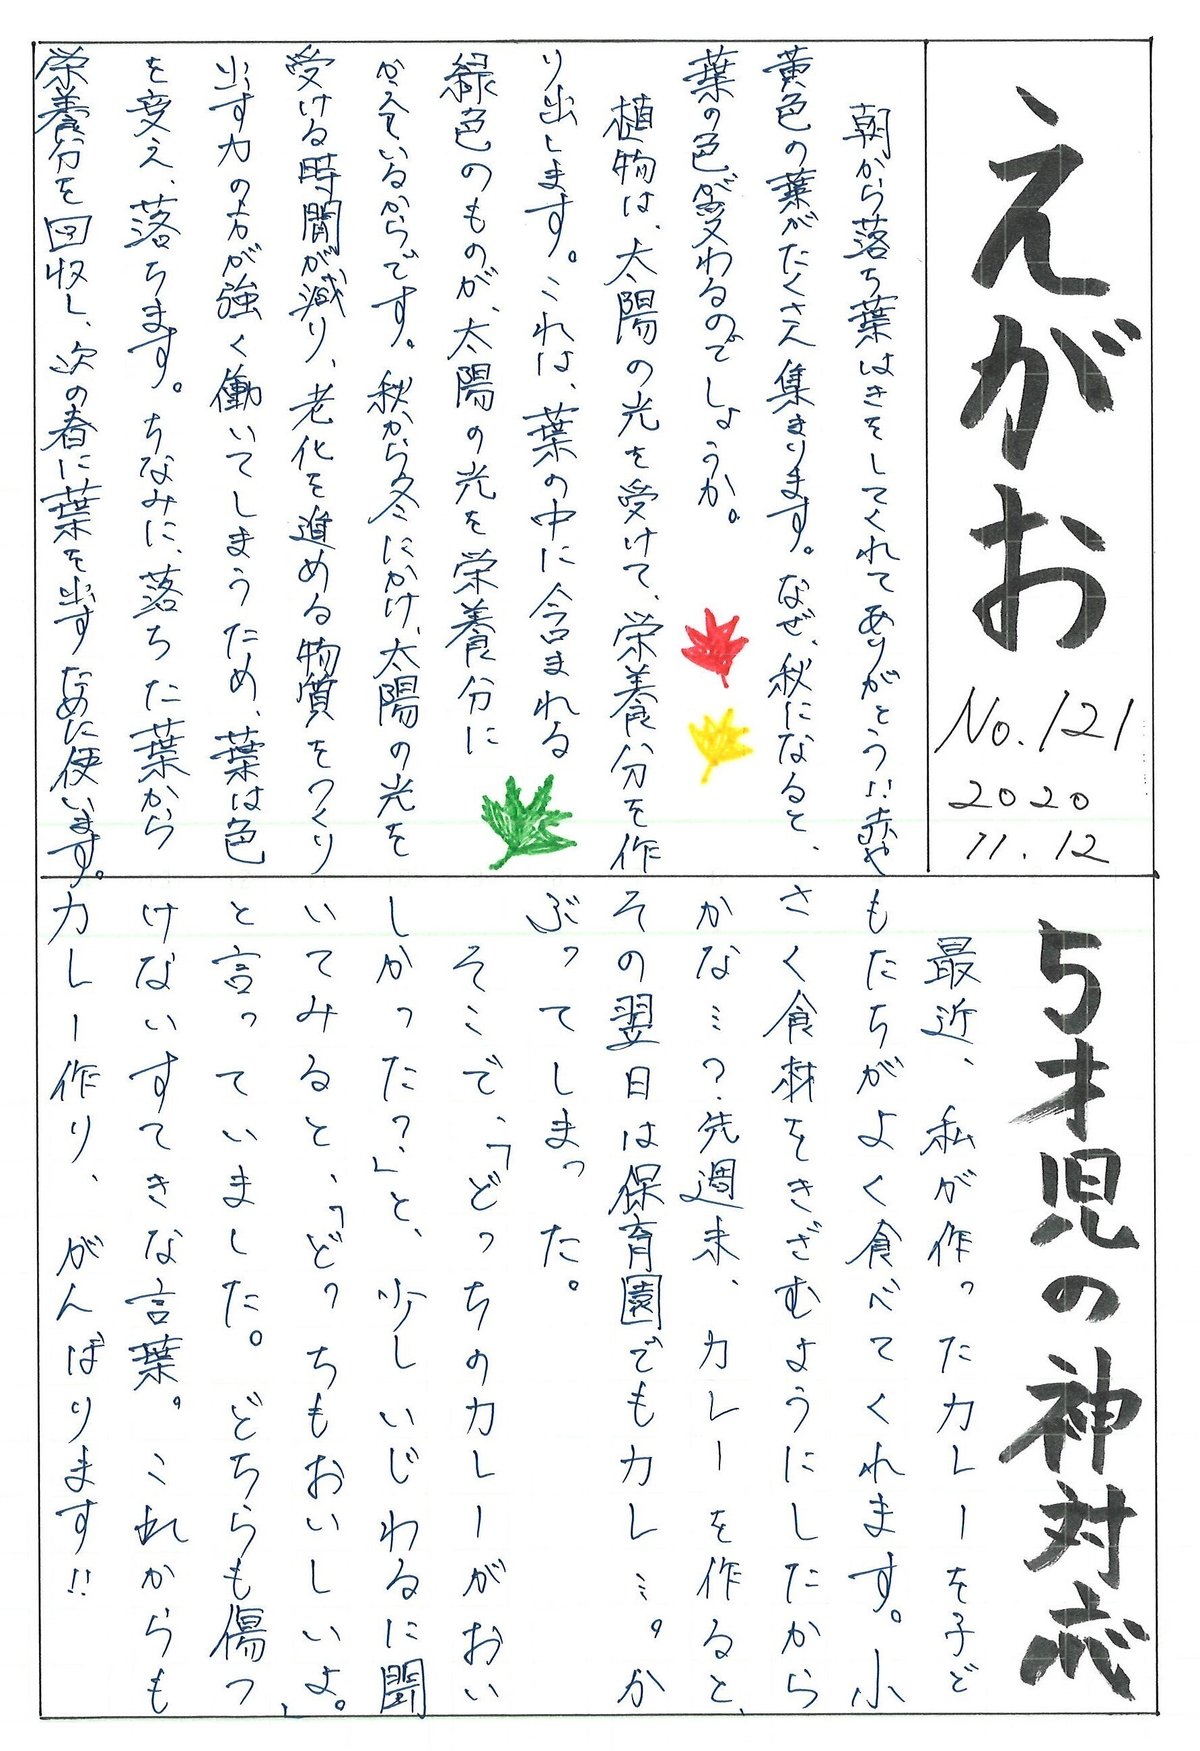 えがお
No.121
2020
11.12
朝から落ち葉はきをしてくれてありがとう!!赤や
黄色の葉がたくさん集まります。なぜ、秋になると、
葉の色が変わるのでしょうか。
植物は、太陽の光を受けて、栄養分を作
り出します。これは、葉の中に含まれる
緑色のものが、太陽の光を栄養分に
かえているからです。秋から冬にかけ、太陽の光を
受ける時間が減り、老化を進める物質をつくり
出す力の方が強く働いてしまうため、葉は色
を変え、落ちます。ちなみに、落ちた葉から
栄養分を回収し、次の春に葉を出すために使います。
5才児の神対応
最近、私が作ったカレーを子ど
もたちがよく食べてくれます。小
さく食材をきざむようにしたから
かな…?先週末、カレーを作ると、
その翌日は保育園でもカレー…。か
ぶってしまった。
そこで、「どっちのカレーがおい
しかった?」と、少しいじわるに聞
いてみると、「どっちもおいしいよ。」
と言っていました。どちらも傷つ
けないすてきな言葉。これからも
カレー作り、がんばります!!